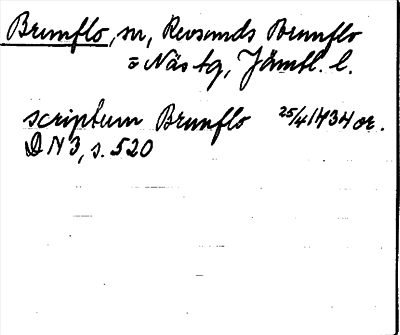 Brunflo, sn, Revsunds Brunflo
o Näs tg, Jämtl. l.
scriptum Brunflo 25/4 1434 or.
DN 3, s. 520